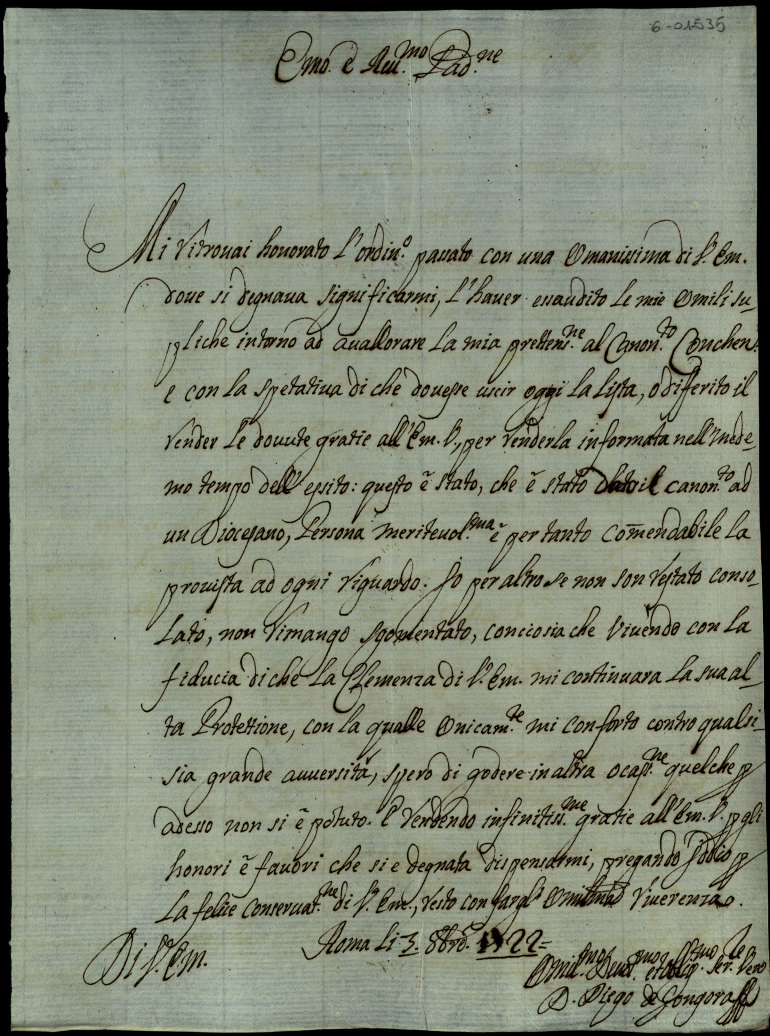 6-01535
Emo. e Reu.mo Pad.ne
Mi ritrouai honorato l'ordin.o passato con una Omanissima di V. Em.
doue si degnaua significarmi, l'hauer essaudito le mie Omili su-
pliche intorno ad auallorare la mia prettens.ne al Canon.to Conchen.
e con la spetatiua di che douesse uscir oggi la lista, o diferito il
render le douute gratie all'Em. V., per renderla informata nell'mede-
mo tempo dell'essito: questo è stato, che è stato dato il canon.to ad
un Diocesano, Persona meriteuol.ma è per tanto comendabile la
prouista ad ogni riguardo. Io per altro se non son restato conso-
lato, non rimango sgomentato, conciosia che viuendo con la
fiducia di che la Clemenza di V. Em. mi continuara la sua al-
ta Protettione, con la qualle Onicam.te mi conforto contro qualsi-
sia grande auuersità, spero di godere in altra ocas.ne quelche p
adesso non si è potuto. E rendendo infinitiss.me gratie all'Em. V. p gli
honori è fauori che si e degnata dispensarmi, pregando Iddio p
la felice conseruat.ne di V. Em., resto con fargl' Omilmà riuerenza.
Roma li 3. 8bre. 1722=
Di V. Em.
Omil.mo Deuot.mo et Oblig. Ser. Vero
D. Diego de Gongora